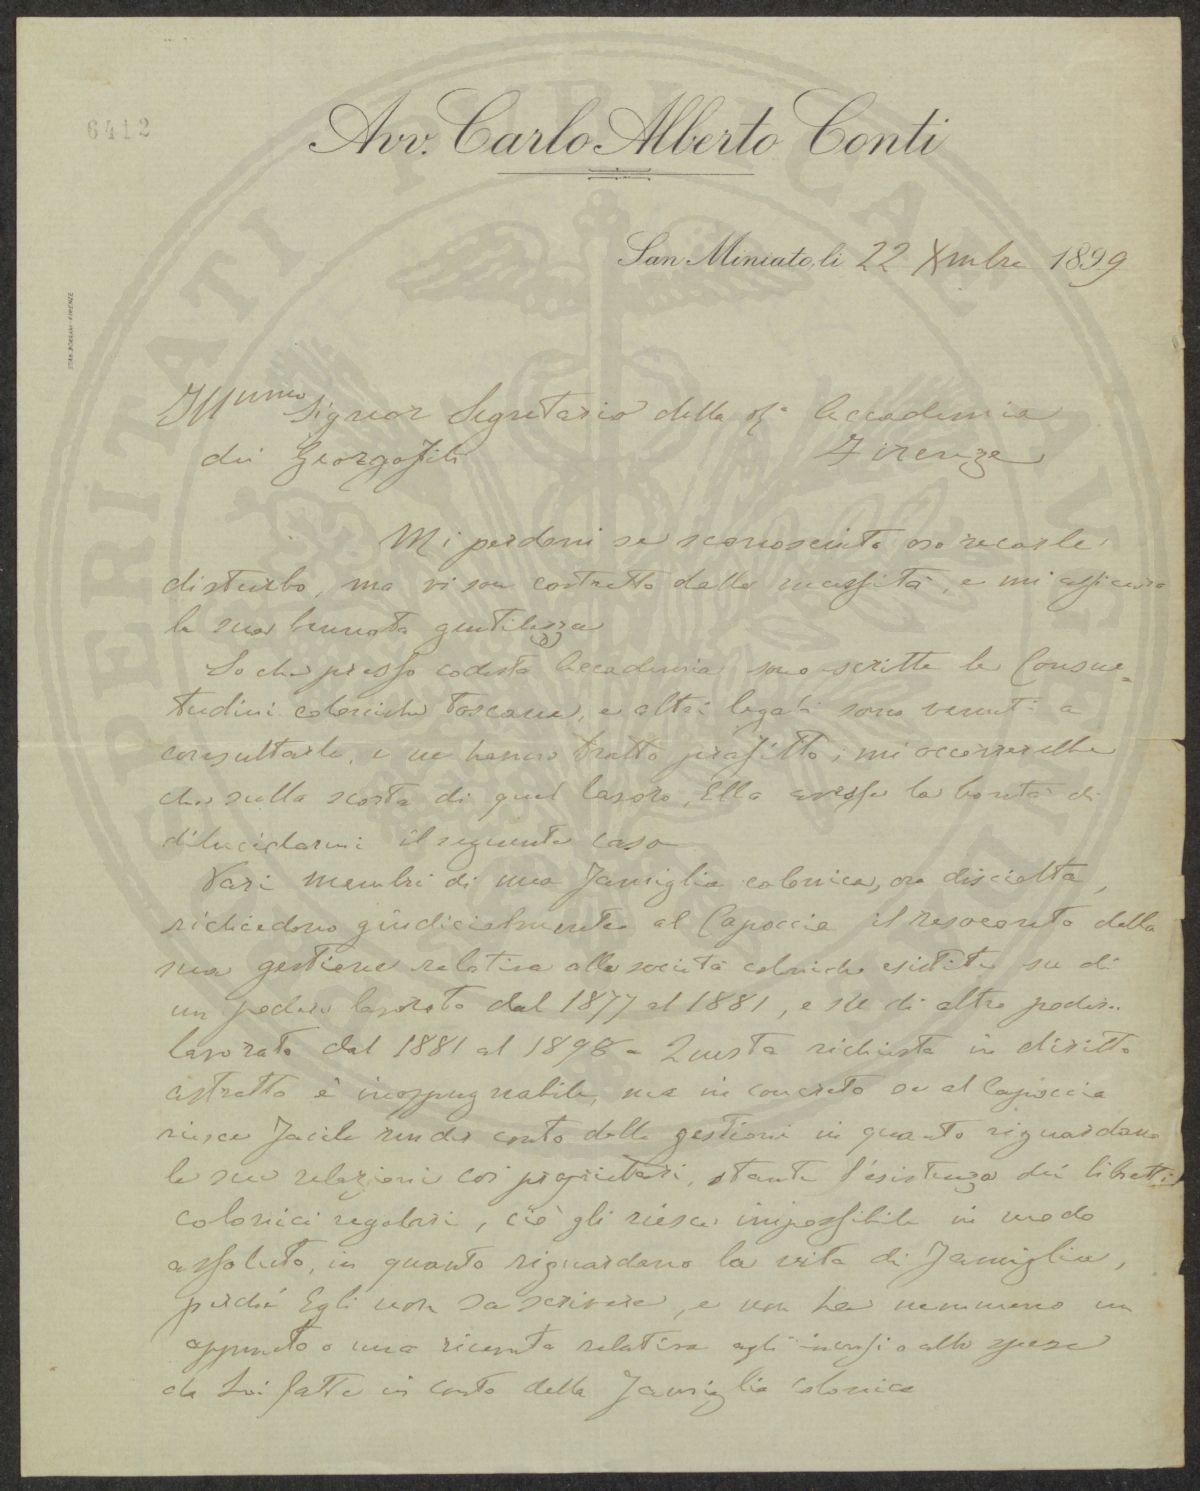 6412
Avv. Carlo Alberto Conti
San Miniato, li 22 Xmbre 1899
STAB. FIRENZE
PROSPERITATI PUBLICAE AUGENDAE
Illmo Signor Segretario della Rª Accademia
dei Georgofili Firenze
Mi perdoni se sconosciuto oso recarle
disturbo, ma vi son costretto dalla necessità, e mi assicura
la sua bennota gentilezza
So che presso codesta Accademia sono scritte le Consue=
tudini coloniche toscane, e altri legali sono venuti a
consultarle, e ne hanno tratto profitto; mi occorrerebbe
che sulla scorta di quel lavoro, Ella avesse la bontà di
dilucidarmi il seguente caso
Vari membri di una famiglia colonica, ora disciolta,
richiedono giudicialmente al Capoccia il resoconto della
sua gestione relativa alle società coloniche esistite su di
un podere lavorato dal 1877 al 1881, e su di altro podere
lavorato dal 1881 al 1898 - Questa richiesta in diritto
astratto è inoppugnabile, ma in concreto se al Capoccia
riesce facile render conto delle gestioni in quanto riguardano
le sue relazioni coi proprietari, stante l'esistenza dei libretti
colonici regolari, ciò gli riesce impossibile in modo
assoluto, in quanto riguardano la vita di famiglia,
perché Egli non sa scrivere, e non ha nemmeno un
appunto o una ricevuta relativa agli incassi o alle spese
da Lui fatte in conto della famiglia colonica